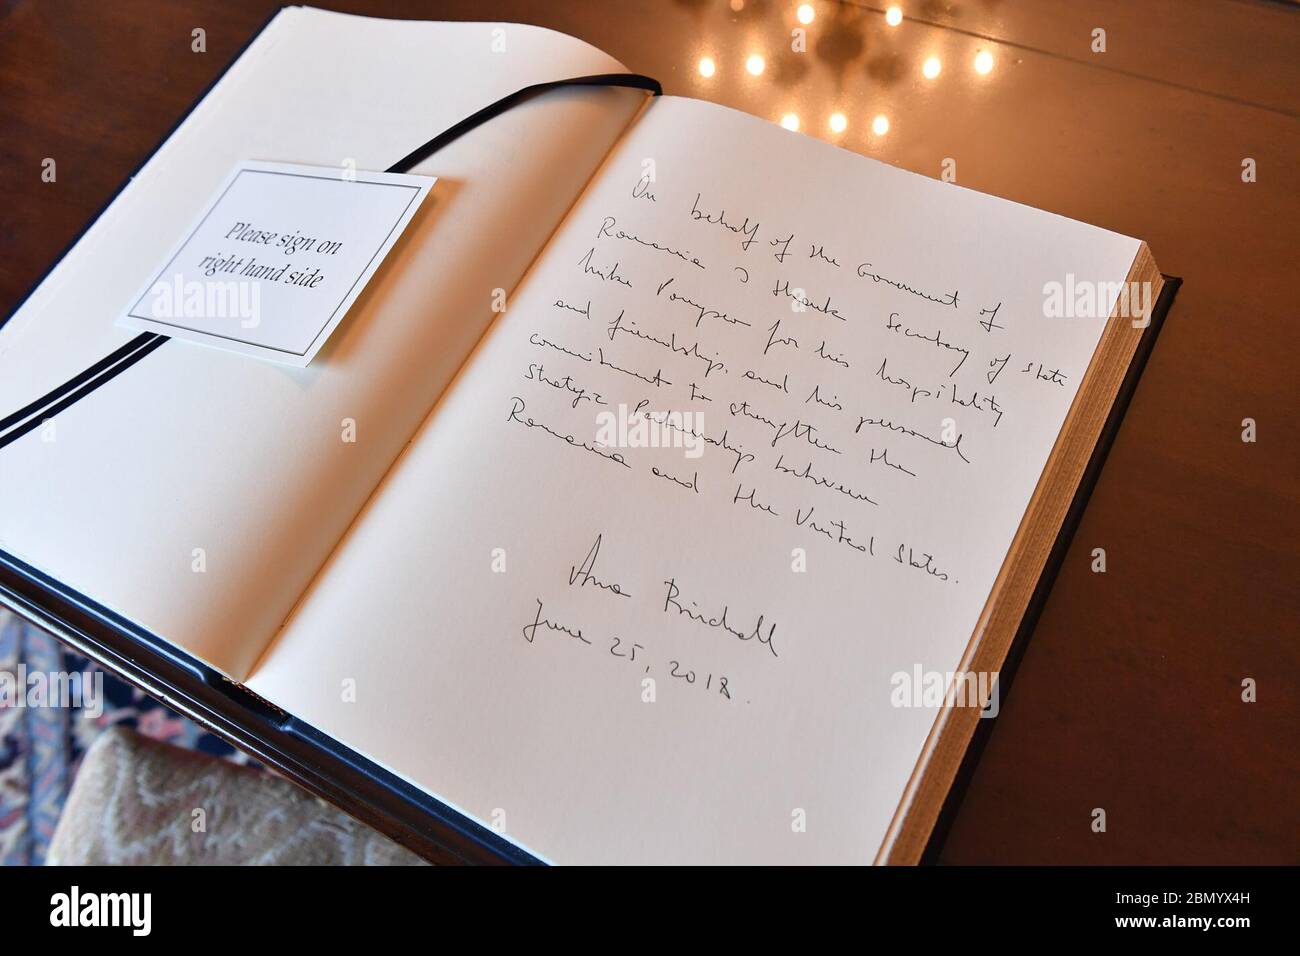 Please sign on
right hand side
On behalf of the Government of
Romania I thank Secretary of State
Mike Pompeo for his hospitality
and friendship, and his personal
commitment to strengthen the
Strategic Partnership between
Romania and the United States.
Ana Birchall
June 25, 2018.
a
alamy
a
alamy
a
alamy
alamy
Image ID: 2BMYX4H
www.alamy.com